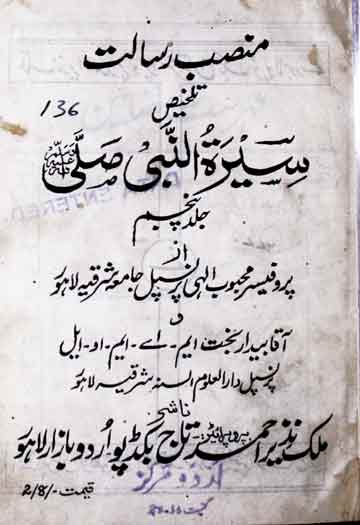 منصب رسالت
تلخیص
136
سیرۃ النبی صلی ﷺ
جلد پنجم
از
پروفیسر محبوب الہی پرنسپل جامعہ شرقیہ لاہور
و
آقا بیدار بخت ایم-اے-ایم-او-ایل
پرنسپل دارالعلوم السنہ شرقیہ لاہور
ناشر
ملک نذیر احمد پروپرائٹر- تاج بکڈپو اردو بازار لاہور
اردو مرکز
قیمت -/2/8